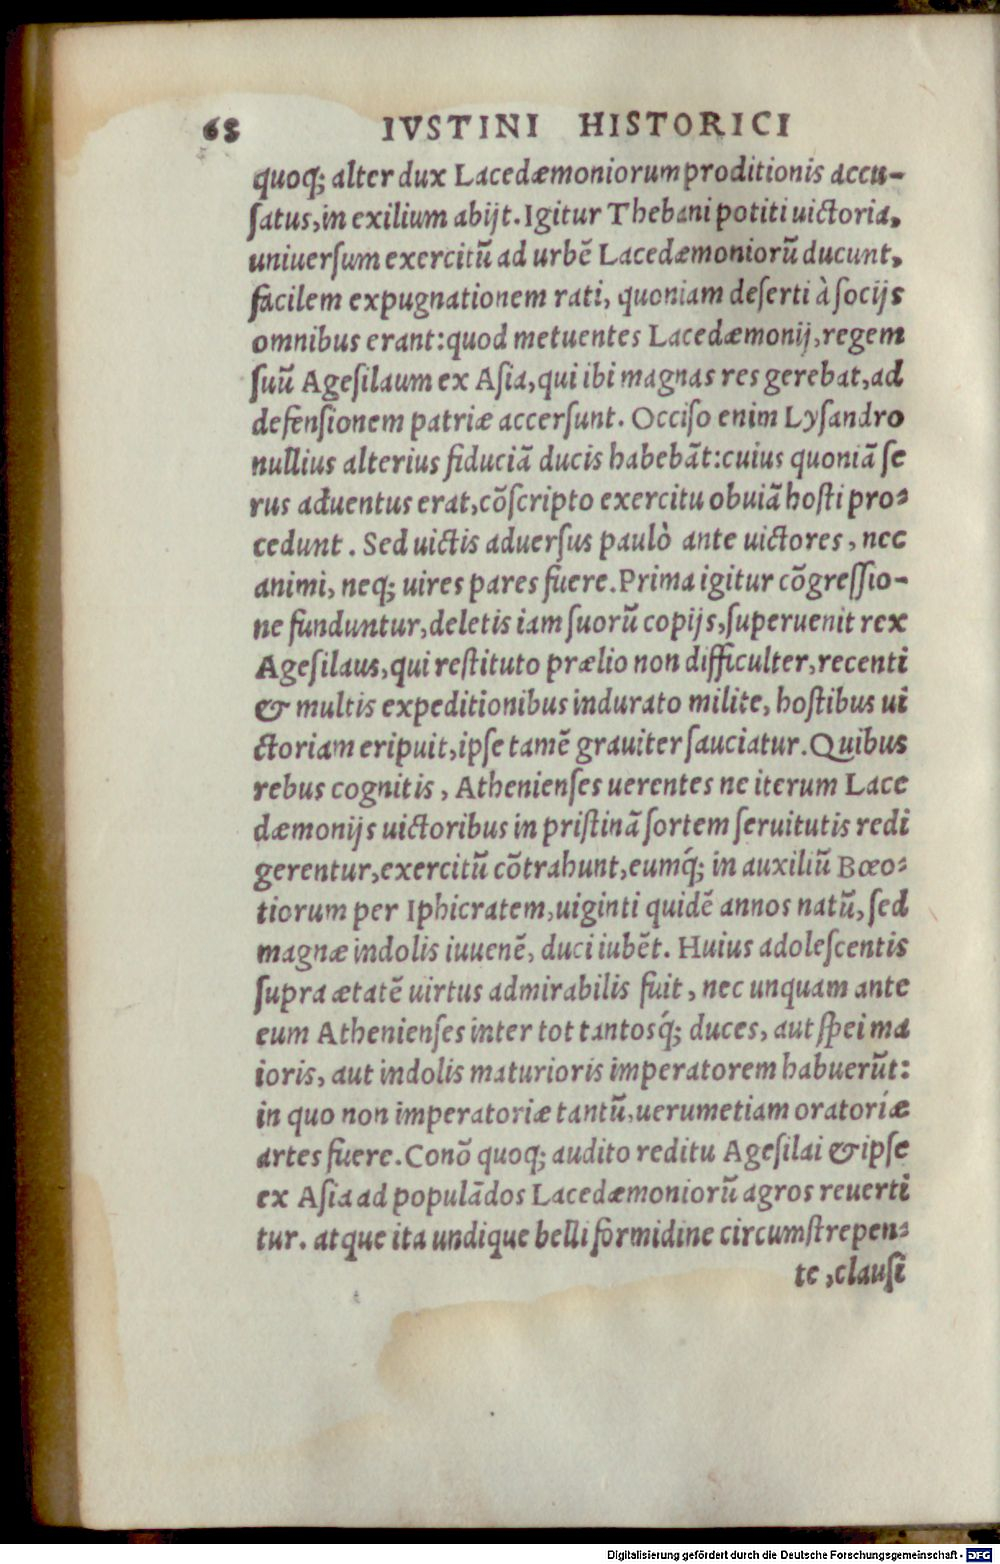 68 IVSTINI HISTORICI
quoq; alter dux Lacedæmoniorum proditionis accu-
ſatus, in exilium abijt. Igitur Thebani potiti uictoria,
uniuerſum exercitū ad urbē Lacedæmoniorū ducunt,
facilem expugnationem rati, quoniam deſerti à ſocijs
omnibus erant: quod metuentes Lacedæmonij, regem
ſuū Ageſilaum ex Aſia, qui ibi magnas res gerebat, ad
defenſionem patriæ accerſunt. Occiſo enim Lyſandro
nullius alterius fiduciā ducis habebāt: cuius quoniā ſe
rus aduentus erat, cōſcripto exercitu obuiā hoſti pro-
cedunt. Sed uictis aduerſus paulò ante uictores, nec
animi, neq; uires pares fuere. Prima igitur cōgreſſio-
ne funduntur, deletis iam ſuorū copijs, ſuperuenit rex
Ageſilaus, qui reſtituto prælio non difficulter, recenti
& multis expeditionibus indurato milite, hoſtibus ui
ctoriam eripuit, ipſe tamē grauiter ſauciatur. Quibus
rebus cognitis, Athenienſes uerentes ne iterum Lace
dæmonijs uictoribus in priſtinā ſortem ſeruitutis redi
gerentur, exercitū cōtrahunt, eumq́; in auxiliū Bœo-
tiorum per Iphicratem, uiginti quidē annos natū, ſed
magnæ indolis iuuenē, duci iubēt. Huius adoleſcentis
ſupra ætatē uirtus admirabilis fuit, nec unquam ante
eum Athenienſes inter tot tantosq́; duces, aut ſpei ma
ioris, aut indolis maturioris imperatorem habuerūt:
in quo non imperatoriæ tantū, uerumetiam oratoriæ
artes fuere. Conō quoq; audito reditu Ageſilai & ipſe
ex Aſia ad populādos Lacedæmoniorū agros reuerti
tur. atque ita undique belli formidine circumſtrepen-
te, clauſi
Digitalisierung gefördert durch die Deutsche Forschungsgemeinschaft - DFG